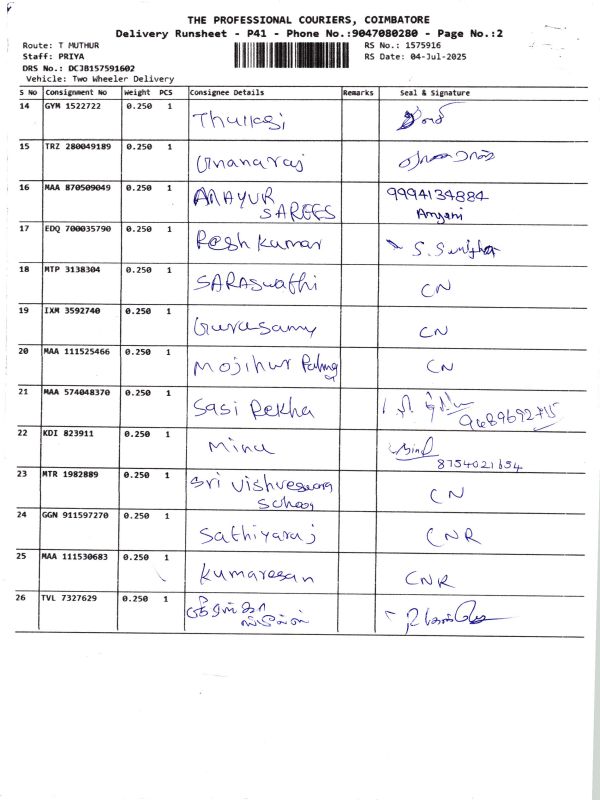 THE PROFESSIONAL COURIERS, COIMBATORE
Delivery Runsheet - P41 - Phone No.:9047080280 - Page No.:2
Route: T MUTHUR RS No.: 1575916
Staff: PRIYA RS Date: 04-Jul-2025
DRS No.: DCJB157591602
Vehicle: Two Wheeler Delivery
S No Consignment No Weight PCS Consignee Details Remarks Seal & Signature
14 GYM 1522722 0.250 1 Thullasi
15 TRZ 280049189 0.250 1 Gnanaraj
16 MAA 870509049 0.250 1 ANAYUR 9994134884
SAREES
17 EDQ 700035790 0.250 1 Resh kumar
18 MTP 3138304 0.250 1 SARASwathi CN
19 IXM 3592740 0.250 1 Gurusamy CN
20 MAA 111525466 0.250 1 Mojihur CN
21 MAA 574048370 0.250 1 Sasi Rekha
9489692715
22 KDI 823911 0.250 1 Minu
8754021654
23 MTR 1982889 0.250 1 Sri CN
24 GGN 911597270 0.250 1 Sathiyaraj CNR
25 MAA 111530683 0.250 1 Kumaresan CNR
26 TVL 7327629 0.250 1